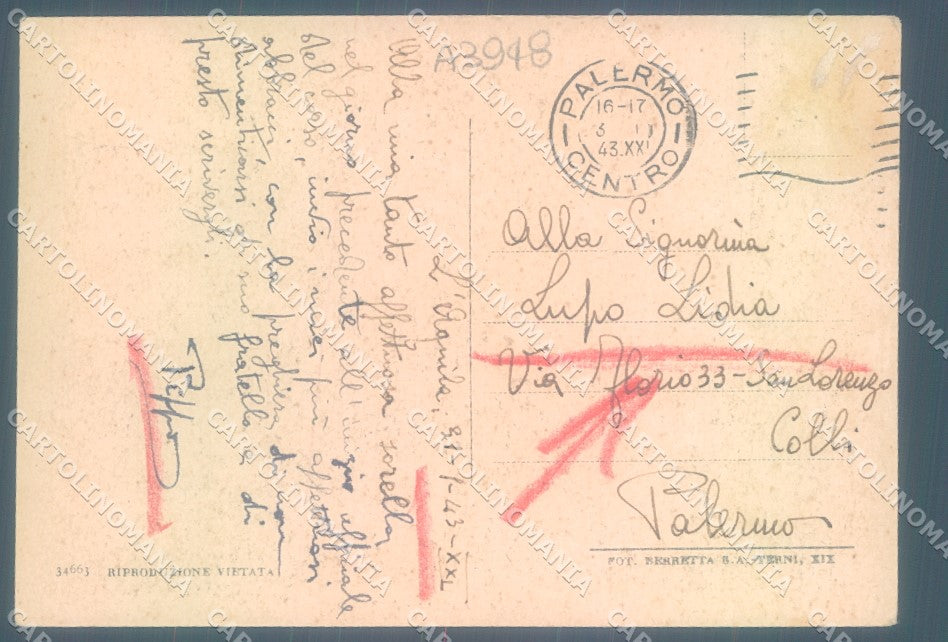 A3948
PALERMO
16-17
43.XXI
CENTRO
L'Aquila, 31-1-43-XXI
Alla mia tanto affettuosa sorella
nel giorno precedente all'inizio ufficiale
del corso, invio i miei più affettuosi
abbracci con la preghiera di non
dimenticarsi di suo fratello e di
presto scrivergli.
Peppino
Alla Signorina
Lupo Lidia
Via Florio 33 - San Lorenzo
Colli
Palermo
34663 RIPRODUZIONE VIETATA
FOT. BERRETTA S.A.-TERNI, XIX
CARTOLINOMANIA